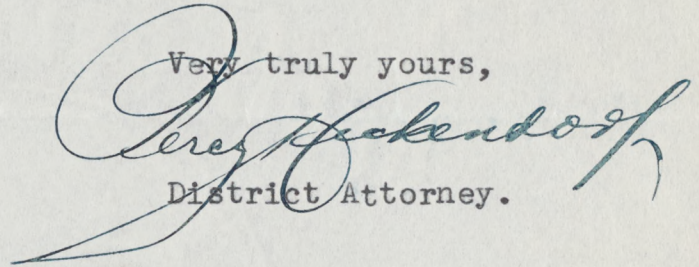 Very truly yours,
Percy Heckendorf
District Attorney.